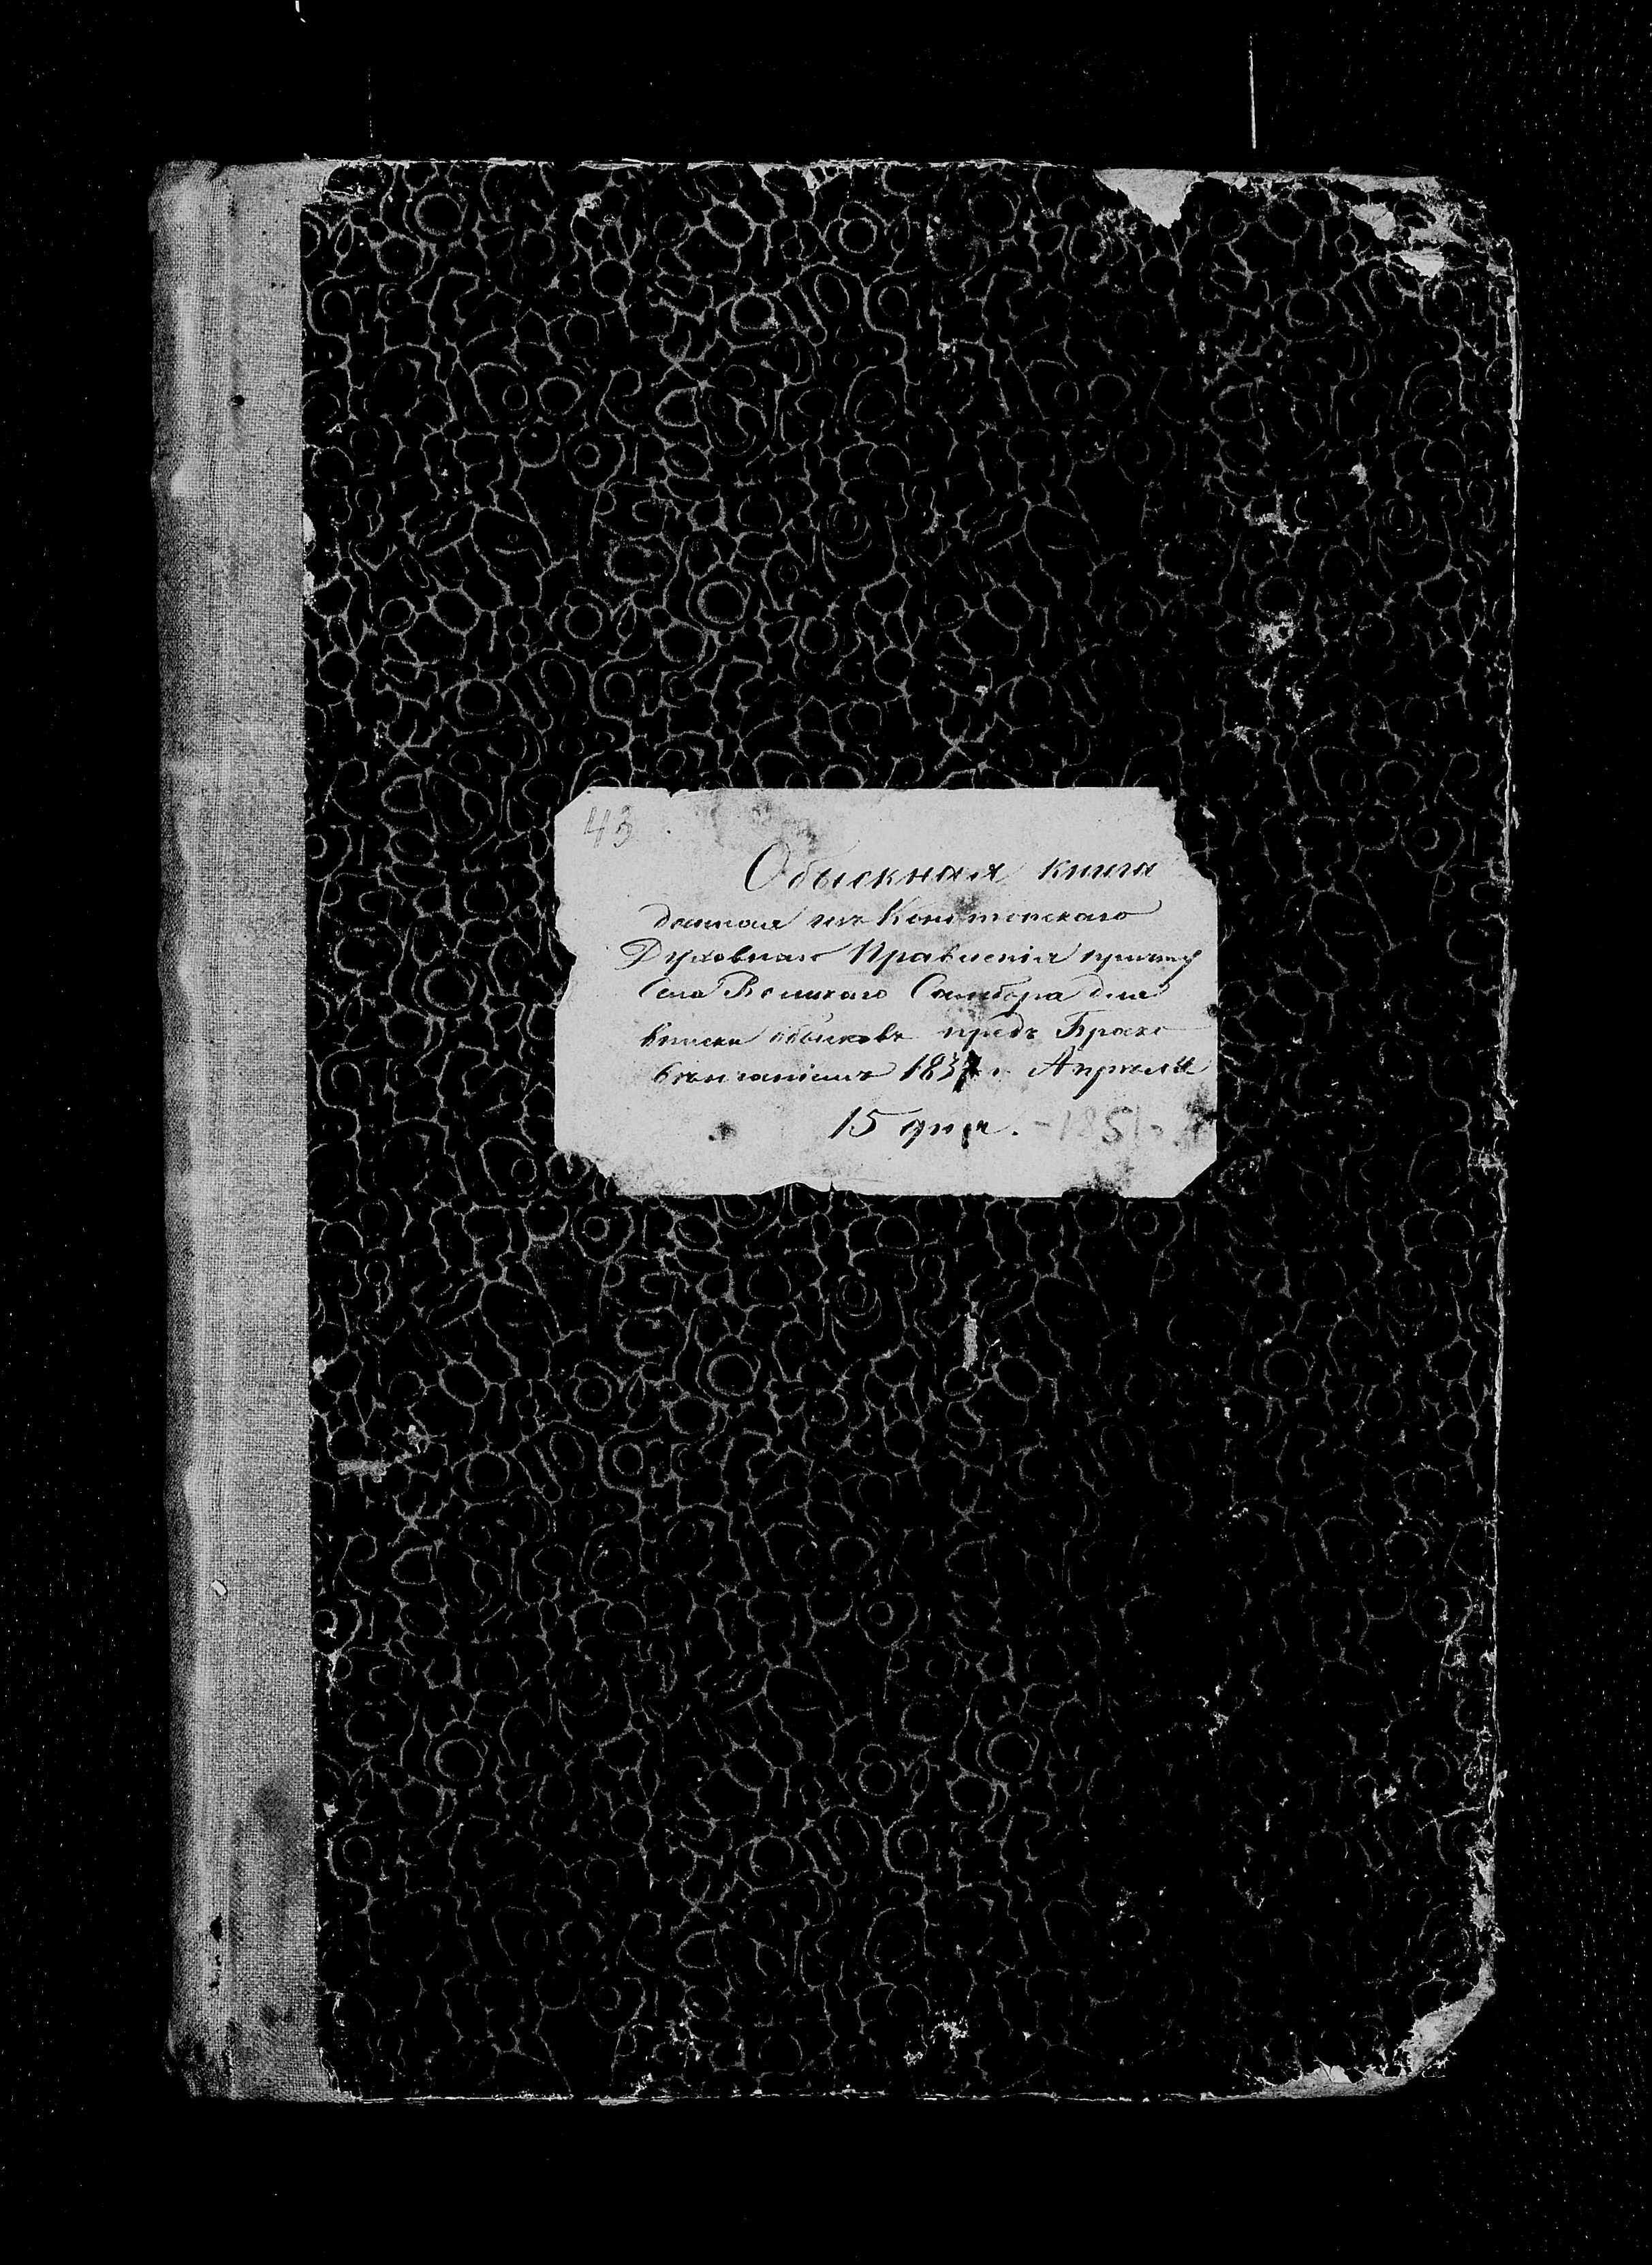 43
Обыскная книга
данная изъ Конотопскаго
Духовнаго Правленія причту
Села Великаго Самбора для
вписки обысковъ предъ Брако
вѣнчаніемъ 1837 г. Апрѣля
15 дня. -1851.